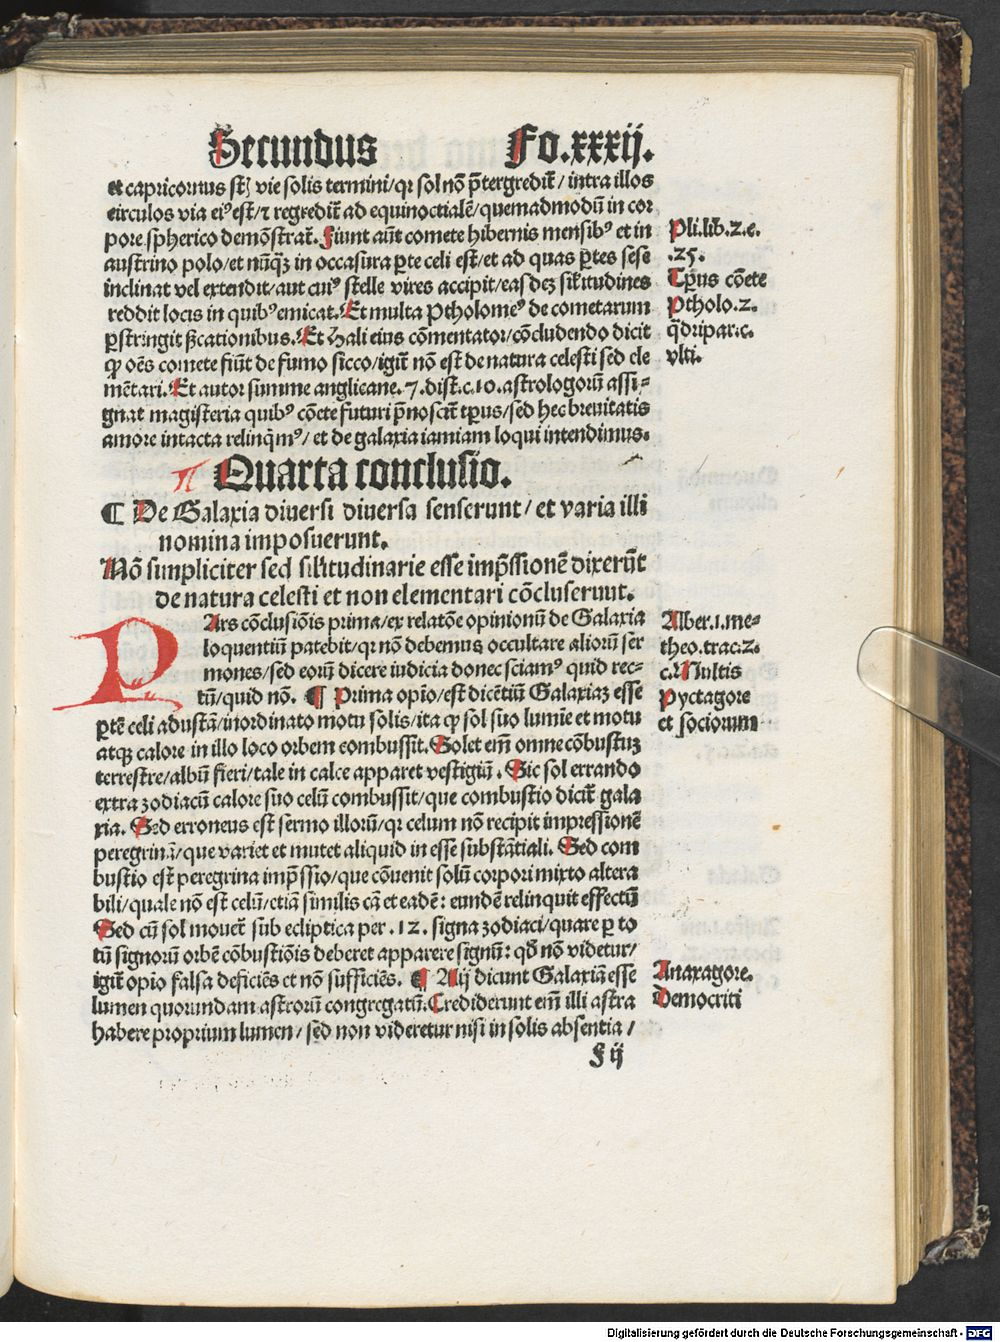 Secundus Fo.xxxij.
et capricornus st̄ vie solis termini/qr sol nō p̄tergredit̄/intra illos
circulos via ei⁹ est/⁊ regredit̄ ad equinoctialē/quemadmodū in cor
pore spherico demōstrat̄. Fiunt aūt comete hibernis mensib⁹ et in
austrino polo/et nūqꝫ in occasura ꝑte celi est/et ad quas ꝑtes sese
inclinat vel extendit/aut cui⁹ stelle vires accipit/eas deꝫ sil̄itudines
reddit locis in quib⁹ emicat. Et multa Ptholome⁹ de cometarum
ꝑstringit ficationibus. Et Hali eius cōmentator/cōcludendo dicit
ꝙ oēs comete fiūt de fumo sicco/igit̄ nō est de natura celesti sed ele
mētari. Et autor summe anglicane.7.dist.c.10.astrologorū assi-
gnat magisteria quib⁹ cōete futuri p̄noscit̄ tp̄us/sed hec breuitatis
amore intacta relinq̄m⁹/et de galaxia iamiam loqui intendimus.
Pli.lib.2.c.
.25.
Tp̄us cōete
Ptholo.2.
q̄dripar.c.
vlti.
Quarta conclusio.
¶ De Galaxia diuersi diuersa senserunt/et varia illi
nomina imposuerunt.
Nō simpliciter sed sil̄itudinarie esse imp̄ssionē dixerūt
de natura celesti et non elementari cōcluserunt.
P Ars cōclusiōis prima/ex relatōe opinionū de Galaxia
loquentiū patebit/qr nō debemus occultare aliorū ser
mones/sed eorū dicere iudicia donec sciam⁹ quid rec-
tū/quid nō. ¶ Prima opio/est dicētiū Galaxiaꝫ esse
ꝑtē celi adustā/inordinato motu solis/ita ꝙ sol suo lumīe et motu
atqꝫ calore in illo loco orbem combussit. Solet em̄ omne cōbustuꝫ
terrestre/albū fieri/tale in calce apparet vestigiū. Sic sol errando
extra zodiacū calore suo celū combussit/que combustio dicit̄ gala
xia. Sed erroneus est sermo illorū/qr celum nō recipit impressionē
peregrinā/que variet et mutet aliquid in esse substātiali. Sed com
bustio est peregrina imp̄ssio/que cōuenit solū corpori mixto altera
bili/quale nō est celū/etiā similis cā et eadē: eundē relinquit effectū
Sed cū sol mouet̄ sub ecliptica per .12. signa zodiaci/quare ꝑ to
tū signorū orbē cōbustiōis deberet apparere signū: qd̄ nō videtur/
igit̄ opio falsa deficiēs et nō sufficiēs. ¶ Alij dicunt Galaxiā esse
lumen quorundam astrorū congregatū. Crediderunt em̄ illi astra
habere proprium lumen/sed non videretur nisi in solis absentia/
Alber.1.me-
theo.trac.2.
c. Multis
Pyctagore
et sociorum
Anaxagore.
Democriti
F ij
Digitalisierung gefördert durch die Deutsche Forschungsgemeinschaft - DFG